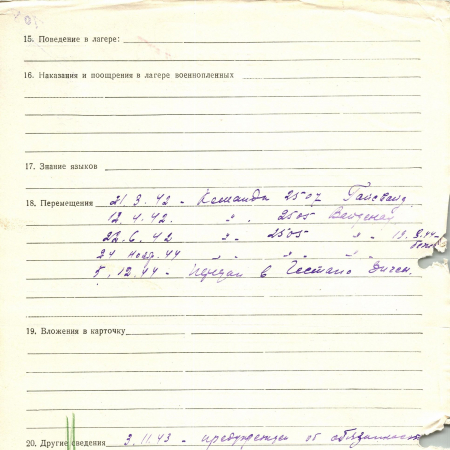 15. Поведение в лагере:
16. Наказания и поощрения в лагере военнопленных
17. Знание языков
18. Перемещения 21.3.42 - Команда 2507
12.4.42. " " 2505
22.6.42 " - 2505 " -
24 нояб. 44 " " "
5.12.44 - передан в Гестапо
19. Вложения в карточку
20. Другие сведения 3.11.43 - предупрежден об